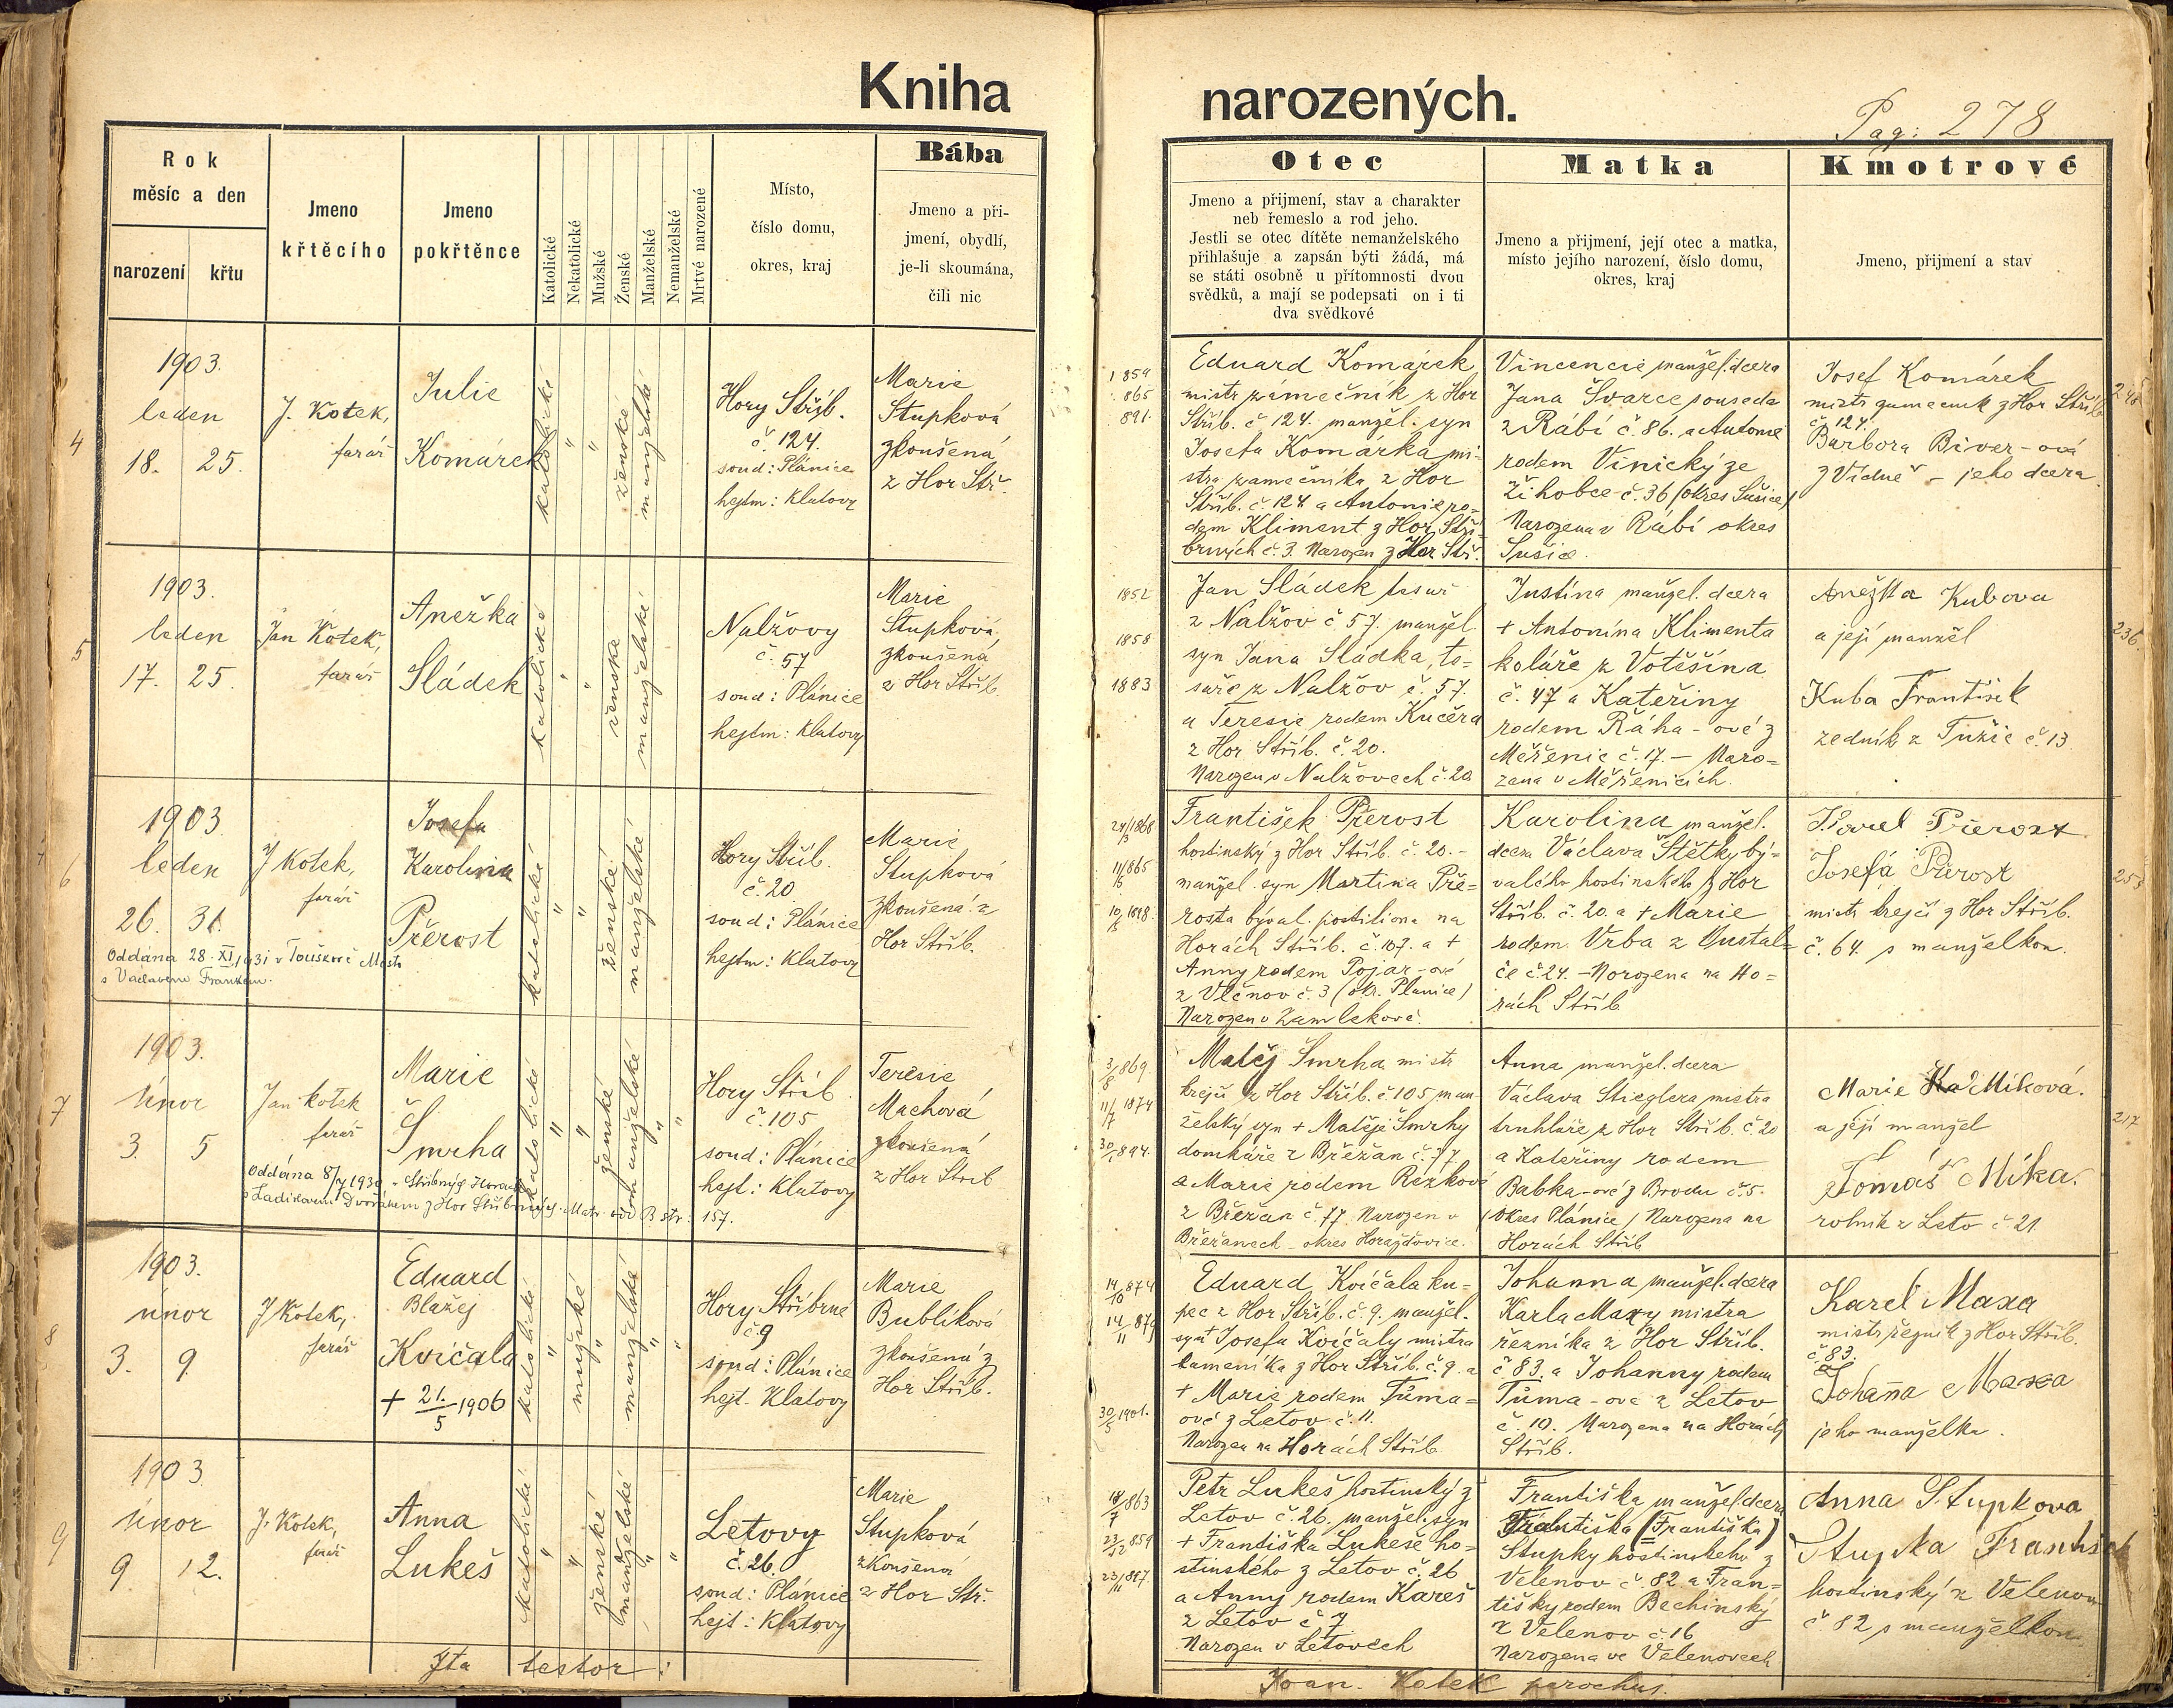 Kniha
narozených.
Pag: 278
Rok
měsíc a den
narození
křtu
Jmeno
křtěcího
Jmeno
pokřtěnce
Katolické
Nekatolické
Mužské
Ženské
Manželské
Nemanželské
Mrtvé narozené
Místo,
číslo domu,
okres, kraj
Bába
Jmeno a při-
jmení, obydlí,
je-li skoumána,
čili nic
Otec
Jmeno a přijmení, stav a charakter
neb řemeslo a rod jeho.
Jestli se otec dítěte nemanželského
přihlašuje a zapsán býti žádá, má
se státi osobně u přítomnosti dvou
svědků, a mají se podepsati on i ti
dva svědkové
Matka
Jmeno a přijmení, její otec a matka,
místo jejího narození, číslo domu,
okres, kraj
Kmotrové
Jmeno, přijmení a stav
4
1903.
leden
18. 25.
J. Kotek,
farář
Julie
Komárek
katolické
" "
ženské
manželské
Hory Stříb.
č 124.
soud: Plánice
hejtm: Klatovy
Marie
Stupková
zkoušená
z Hor Stř.
1859
865
891.
Eduard Komárek
mistr zámečník z Hor
Stříb. č 124. manžel. syn
Josefa Komárka mi-
stra zámečníka z Hor
Stříb. č. 124 a Antonie ro-
dem Kliment z Hor Stří-
brných č. 3. Narozen z Hor Stř.
Vincencie manžel. dcera
Jana Švarce souseda
z Rábí č. 86. a Antonie
rodem Vinický ze
Žihobce č. 36 (okres Sušice)
Narozena v Rábí okres
Sušice.
Josef Komárek
mistr zámečník z Hor Stříb
č. 124.
Barbora Biver-ová
z Vídně - jeho dcera.
5
1903.
leden
17. 25.
Jan Kotek,
farář
Anežka
Sládek
katolické
" "
ženské
manželské
Nalžovy
č. 57
soud: Plánice
hejtm: Klatovy
Marie
Stupková,
zkoušená
z Hor Stříb.
1852
1858
1883
Jan Sládek tesař
z Nalžov č 57. manžel.
syn Jana Sládka, te-
saře z Nalžov č. 57.
a Teresie rodem Kučera
z Hor Stříb. č. 20.
Narozen v Nalžovech č. 20
Justina manžel. dcera
+ Antonína Klimenta
koláře z Votěšína
č. 47 a Kateřiny
rodem Ráha-ové z
Měřenic č. 17. - Naro-
zena v Měřenicích.
Anežka Kubova
a její manžel
Kuba František
zedník z Tužic č. 13
236.
6
1903.
leden
26. 31.
J Kotek,
farář
Josefa
Karolina
Přerost
Oddána 28. XI. 1931 v Touškově Městě
s Václavem Frankem.
katolické
" "
ženské
manželské
Hory Stříb.
č. 20
soud: Plánice
hejtm: Klatovy
Marie
Stupková
zkoušená z
Hor Stříb.
František Přerost
hostinský z Hor Stříb. č. 20. -
manžel. syn Martina Pře-
rosta býval. postiliona na
Horách Stříb. č. 107. a +
Anny rodem Pojar-ové
z Vlčnov č. 3 (okr. Plánice)
Narozen v Zamlekově.
Karolina manžel.
dcera Václava Štětky bý-
valého hostinského z Hor
Stříb. č. 20. a + Marie
rodem Vrba z
če č. 24. - Narozena na Ho-
rách Stříb
Karel Přerost
Josefa Přerost
mistr krejčí z Hor Stříb.
č. 64. s manželkou.
7
1903.
únor
3. 5
Jan Kotek
farář
Marie
Šmrha
Oddána 8/7 1930 v Stříbrných Horách
s Ladislavem Dvořákem z Hor Stříbrných. Matr. odd B str: 157.
katolické
" "
ženské
manželské
" "
Hory Stříb.
č. 105
soud: Plánice
hejt: Klatovy
Teresie
Machová
zkoušená
z Hor Stříb
3/8 869.
11/7 1874
30/1 894.
Matěj Šmrha mistr
krejčí z Hor Stříb. č. 105 man
želský syn + Matěje Šmrhy
domkáře z Břežan č. 77
a Marie rodem Rezkové
z Břežan č. 77. Narozen v
Břežanech - okres Horažďovice.
Anna manžel. dcera
Václava Stieglera mistra
truhláře z Hor Stříb. č. 20
a Kateřiny rodem
Babka-ové z Brodu č. 5.
(okres Plánice) Narozena na
Horách Stříb
Marie Míková.
a její manžel
Tomáš Míka.
rolník z Letov č 21
217
8
1903.
únor
3. 9.
J Kotek,
farář
Eduard
Blažej
Kvíčala
+ 21./5 1906
katolické
"
mužské
"
manželské
" "
Hory Stříbrné
č 9
soud: Plánice
hejt. Klatovy
Marie
Bublíková
zkoušená z
Hor Stříb.
14/10 874
14/11 879
30/5 1901.
Eduard Kvíčala ku-
pec z Hor Stříb. č. 9. manžel.
syn Josefa Kvíčaly mistra
kameníka z Hor Stříb. č. 9. a
+ Marie rodem Tůma-
ové z Letov č. 11.
Narozen na Horách Stříb
Johanna manžel. dcera
Karla Maxy mistra
řezníka z Hor Stříb.
č 83. a Johanny rodem
Tůma-ové z Letov
č. 10. Narozena na Horách
Stříb.
Karel Maxa
mistr řezník z Hor Stříb.
č. 83.
Johana Maxa
jeho manželka.
9
1903.
únor
9 12.
J. Kotek,
farář
Anna
Lukeš
katolické
" "
ženské
manželské
" "
Letovy
č. 26.
soud: Plánice
hejt: Klatovy
Marie
Stupková
zkoušená
z Hor Stř.
Petr Lukeš hostinský z
Letov č. 26. manžel. syn
+ Františka Lukeše ho-
stinského z Letov č. 26
a Anny rodem Kareš
z Letov č 7
Narozen v Letovech
Františka manžel. dcera
Františka (Františka)
Stupky hostinského z
Velenov č. 82 a Fran-
tišky rodem Bechinský
z Velenov č. 16
Narozena ve Velenovech
Anna Stupkova
Stupka František
hostinský z Velenov
č. 82 s manželkou
Ita testor:
Joan. Kotek parochus.